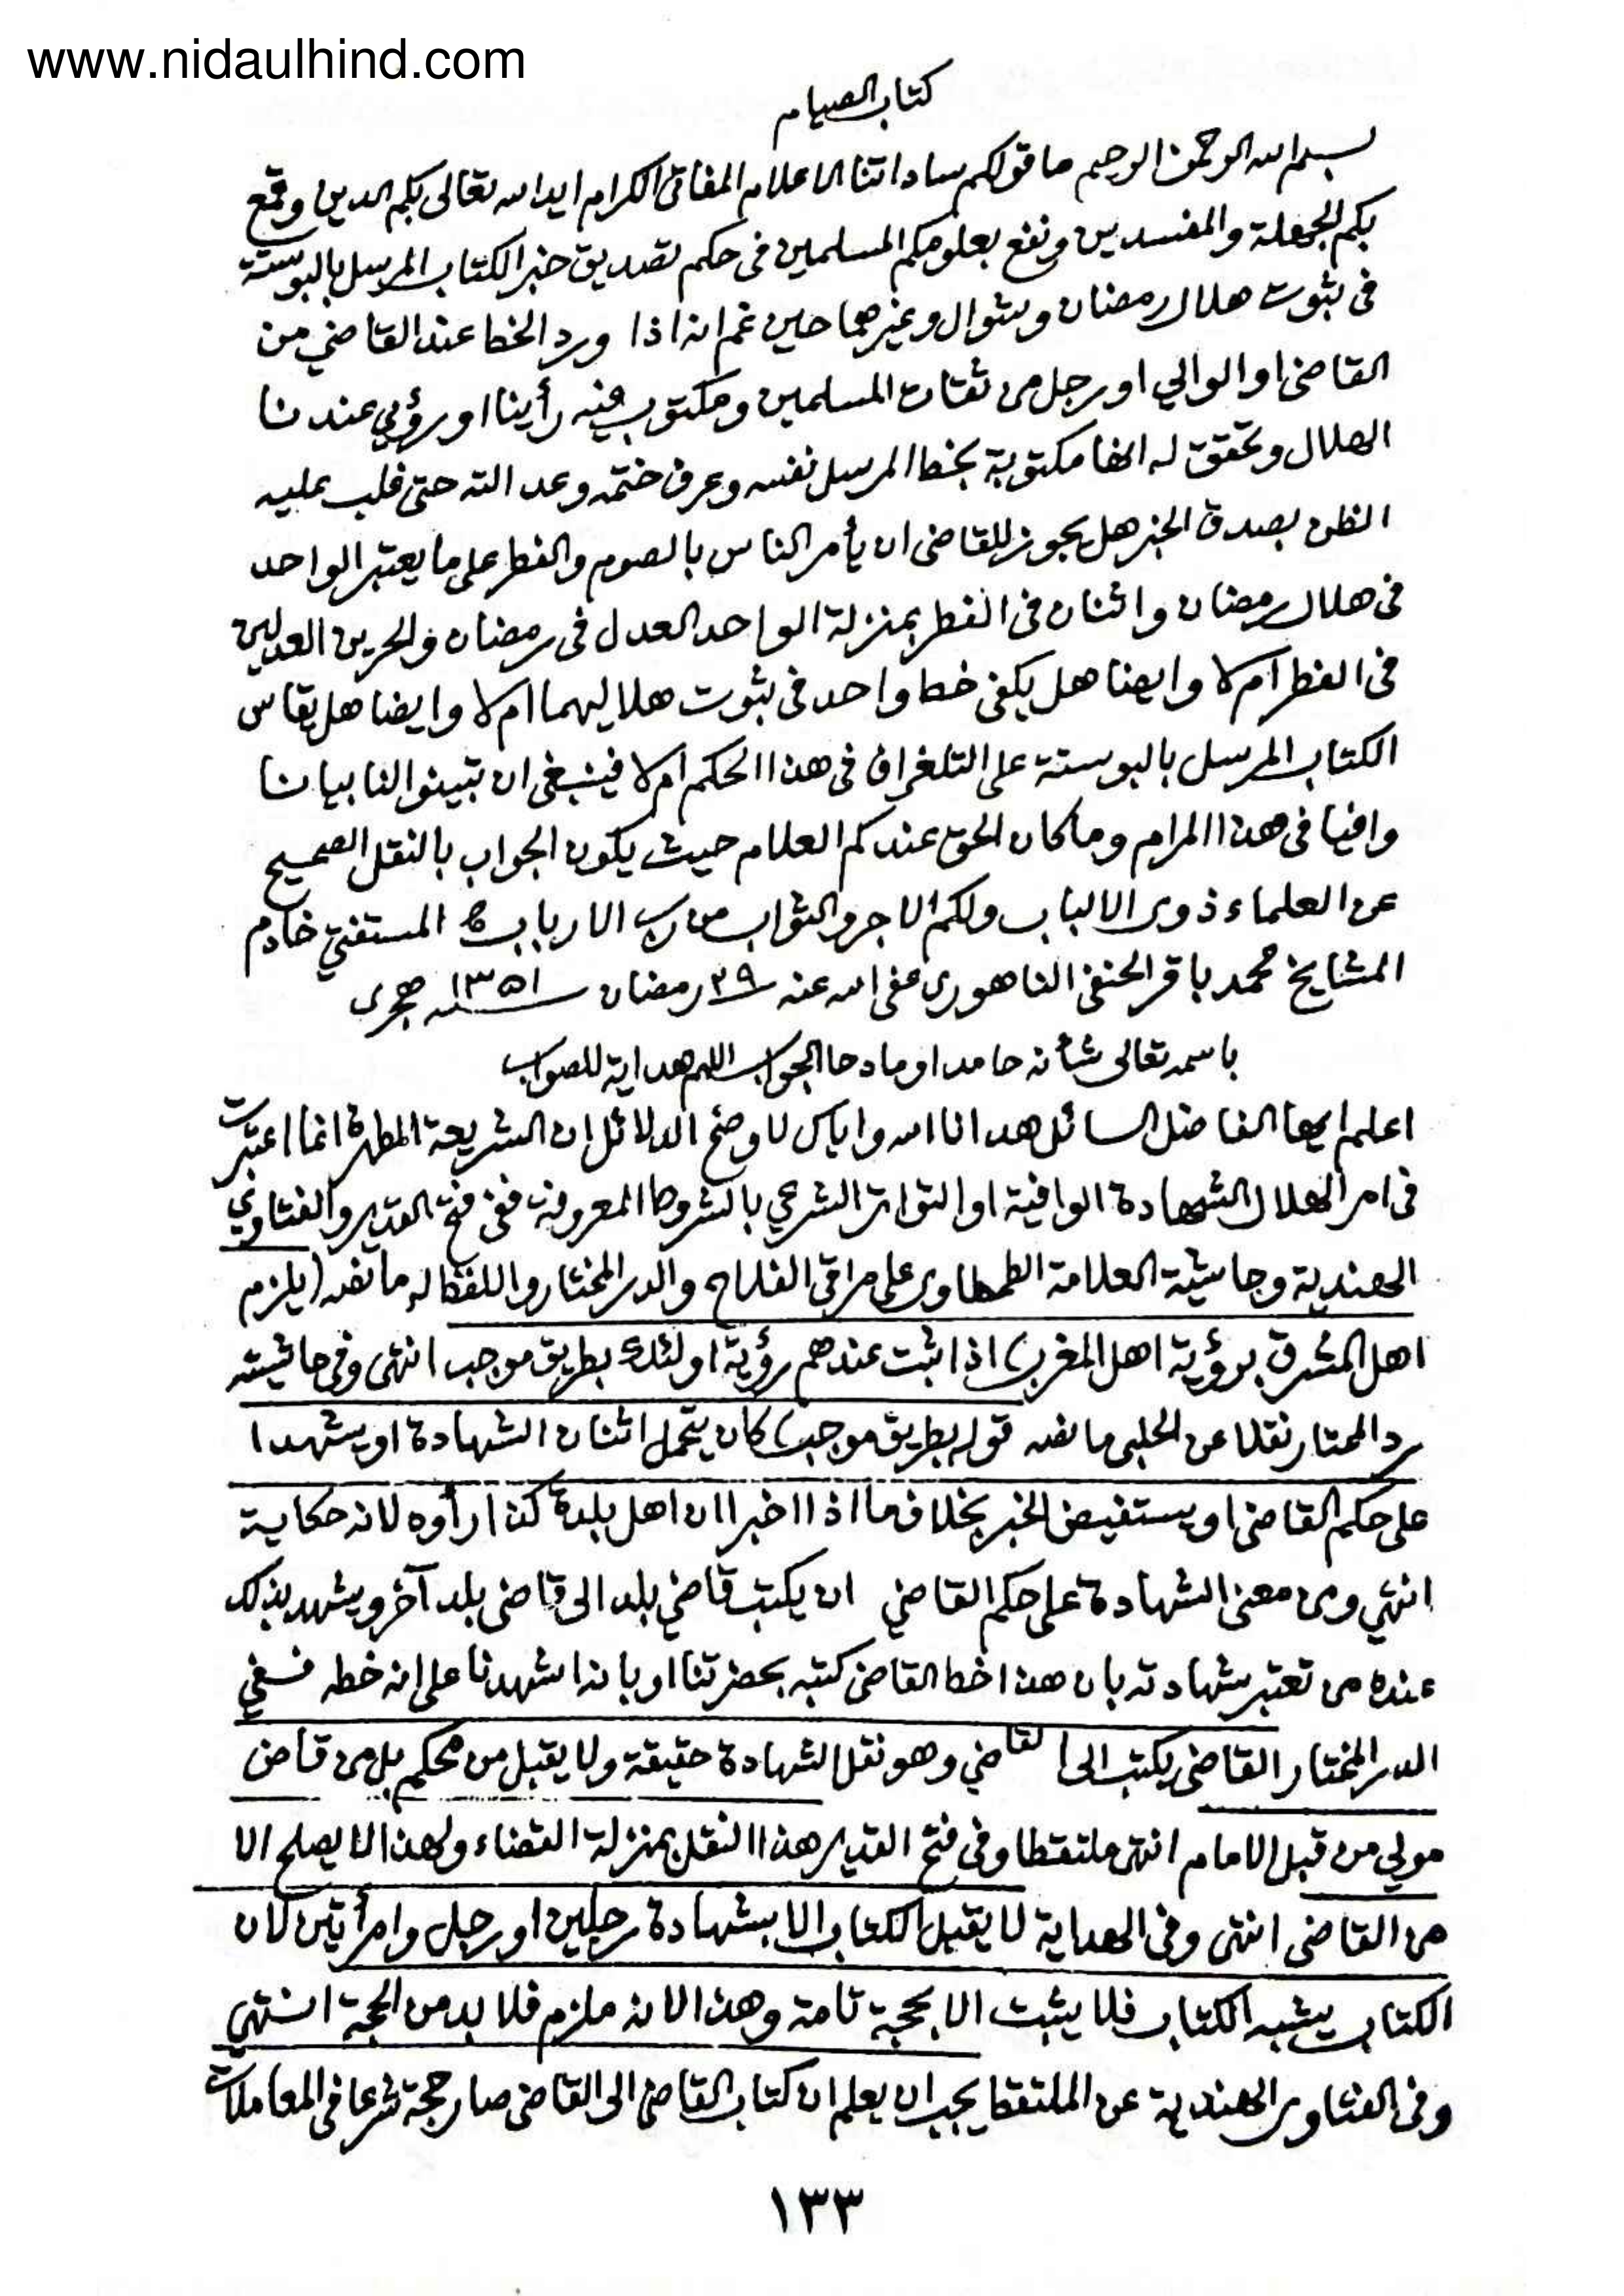 www.nidaulhind.com
كتاب الصيام
بسم الله الرحمن الرحيم ما قولكم ساداتنا الاعلام المفاتى الكرام ايد الله تعالى بكم الدين وقمع
بكم الجهلة والمفسدين ونفع بعلومكم المسلمين فى حكم تصديق خبر الكتاب المرسل بالبوستة
فى ثبوت هلال رمضان وشوال وغيرهما حين غم انه اذا ورد الخط عند القاضي من
القاضى او الوالي او رجل من ثقات المسلمين ومكتوب فيه رأينا او رؤي عندنا
الهلال وتحقق له انها مكتوبة بخط المرسل نفسه وعرف ختمه وعدالته حتى غلب عليه
الظن بصدق الخبر هل يجوز للقاضى ان يأمر الناس بالصوم والفطر على ما يعتبر الواحد
فى هلال رمضان واثنان فى الفطر بمنزلة الواحد العدل فى رمضان والحرين العدلين
فى الفطر ام لا وايضا هل يكفى خط واحد فى ثبوت هلاليهما ام لا وايضا هل يقاس
الكتاب المرسل بالبوستة على التلغراف فى هذا الحكم ام لا فينبغى ان تبينوا لنا بيانا
وافيا فى هذا المرام وما كان الحق عندكم العلام حيث يكون الجواب بالنقل الصحيح
عن العلماء ذوى الالباب ولكم الاجر والثواب من رب الارباب المستفتي خادم
المشايخ محمد باقر الحنفى الناهورى عفى الله عنه ٢٩ رمضان ١٣٥١ هجرى
باسمه تعالى شأنه حامدا ومادحا الجواب اللهم هداية للصواب
اعلم ايها الفاضل السائل هدانا الله واياك لاوضح الدلائل ان الشريعة المطهرة انما اعتبرت
فى امر الهلال الشهادة الوافية او التواتر الشرعي بالشروط المعروفة ففى فتح القدير والفتاوي
الهندية وحاشية العلامة الطحطاوى على مراقى الفلاح والدر المختار واللفظ له ما نصه (يلزم
اهل المشرق برؤية اهل المغرب) اذا ثبت عندهم رؤية اولئك بطريق موجب انتهى وفى حاشيته
رد المحتار نقلا عن الحلبى ما نصه قوله بطريق موجب) كان يتحمل اثنان الشهادة او يشهدا
على حكم القاضى او يستفيض الخبر بخلاف ما اذا اخبرا ان اهل بلدة كذا رأوه لانه حكاية
انتهي ومن معنى الشهادة على حكم القاضي ان يكتب قاضي بلد الى قاضى بلد آخر ويشهد بذلك
عنده من تعتبر شهادته بان هذا خط القاضى كتبه بحضرتنا او بانه اشهدنا على انه خطه ففي
الدر المختار القاضى يكتب الى القاضي وهو نقل الشهادة حقيقة ولا يقبل من محكم بل من قاض
مولي من قبل الامام انتهى ملتقطا وفى فتح القدير هذا النقل بمنزلة القضاء ولهذا لا يصلح الا
من القاضى انتهى وفى الهداية لا يقبل الكتاب الا بشهادة رجلين او رجل وامرأتين لان
الكتاب يشبه الكتاب فلا يثبت الا بحجة تامة وهذا لانه ملزم فلا بد من الحجة انتهي
وفى الفتاوى الهندية عن الملتقط يجب ان يعلم ان كتاب القاضى الى القاضى صار حجة شرعا فى المعاملات
١٣٣